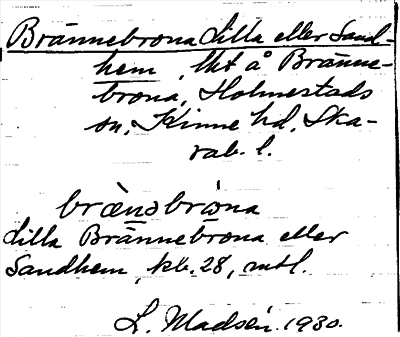 Brännebrona Lilla eller Sand-
hem, lht å Bränne-
brona, Holmestads
sn, Kinne hd, Ska-
rab. l.
brænəbròna
Lilla Brännebrona eller
Sandhem, kb. 28, mtl.
L. Madsén. 1930.